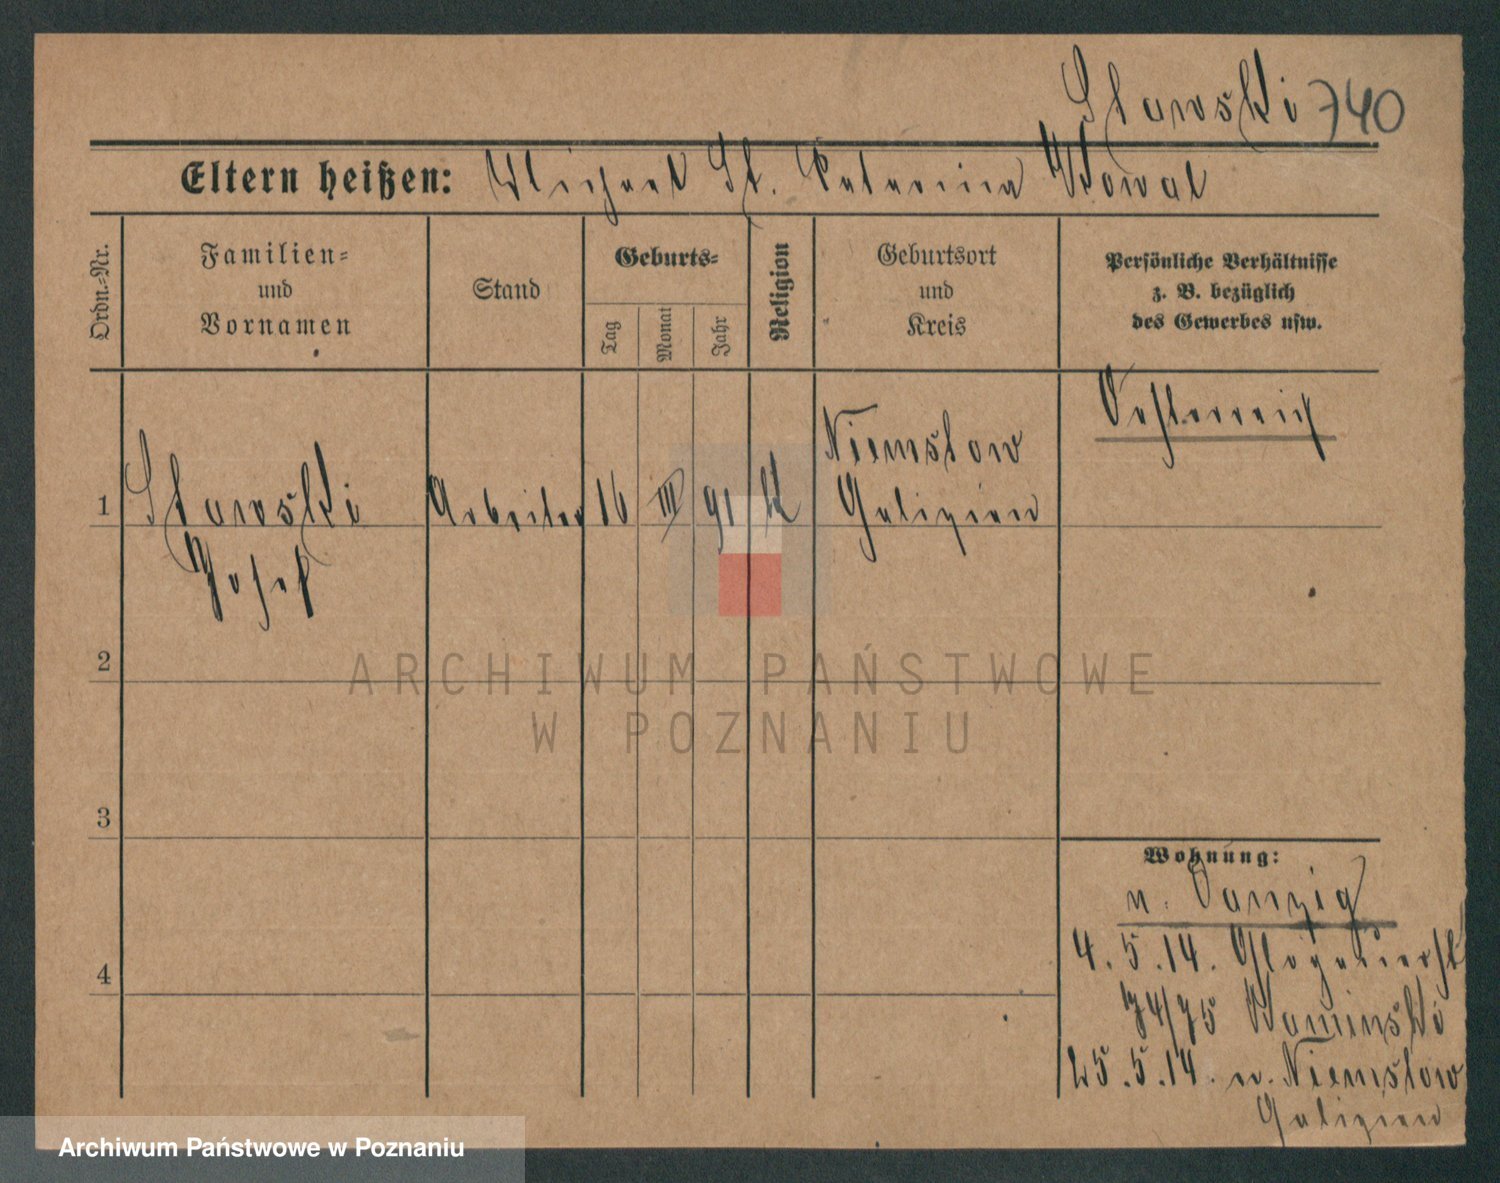 Stawski 740
Eltern heißen: Michael St. Katarina Kowal
Ordn.-Nr.
Familien-
und
Vornamen
Stand
Geburts-
Tag
Monat
Jahr
Religion
Geburtsort
und
Kreis
Persönliche Verhältnisse
z. B. bezüglich
des Gewerbes usw.
Oesterreich
1 Stawski Arbeiter 16 III 91 K Niemstow
Galizien
Josef
2
ARCHIWUM PAŃSTWOWE
W POZNANIU
3
Wohnung:
n. Danzig
4. 5. 14. Glogauerst
74/75 Kaminski
4
25. 5. 14. n. Niemstow
Galizien
Archiwum Państwowe w Poznaniu